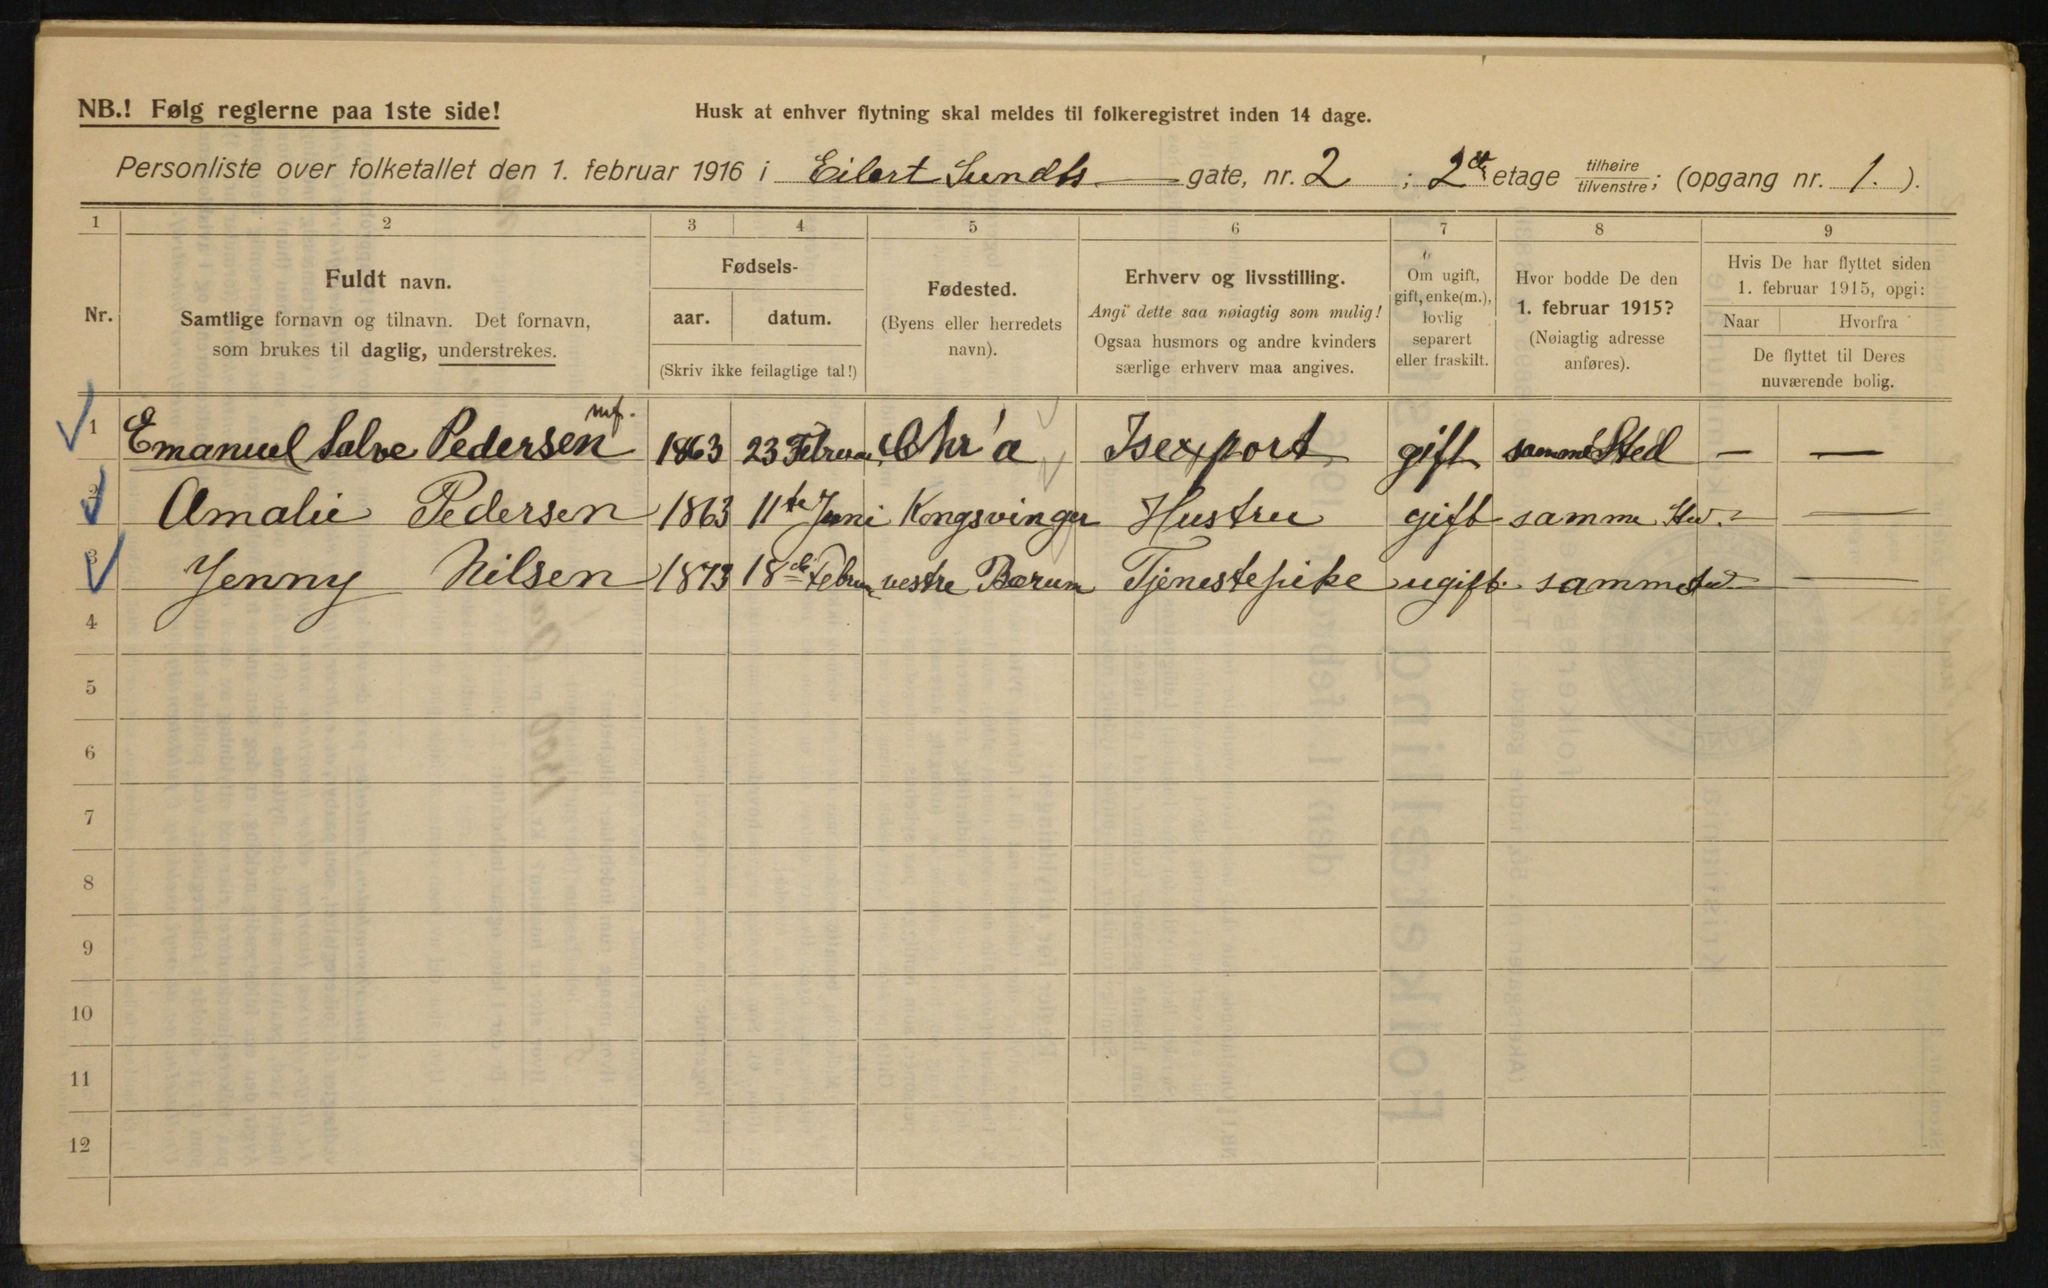 NB.! Følg reglerne paa 1ste side!
Husk at enhver flytning skal meldes til folkeregistret inden 14 dage.
Personliste over folketallet den 1. februar 1916 i Eilert Sundts gate, nr. 2 ; 2 etage tilhøire tilvenstre; (opgang nr. 1. ).
1 2 3 4 5 6 7 8 9
Nr.
Fuldt navn.
Samtlige fornavn og tilnavn. Det fornavn,
som brukes til daglig, understrekes.
Fødsels-
aar. datum.
(Skriv ikke feilagtige tal!)
Fødested.
(Byens eller herredets
navn).
Erhverv og livsstilling.
Angi dette saa nøiagtig som mulig!
Ogsaa husmors og andre kvinders
særlige erhverv maa angives.
Om ugift,
gift, enke(m.),
lovlig
separert
eller fraskilt.
Hvor bodde De den
1. februar 1915?
(Nøiagtig adresse
anføres).
Hvis De har flyttet siden
1. februar 1915, opgi:
Naar Hvorfra
De flyttet til Deres
nuværende bolig.
mf.
1 Emanuel Salve Pedersen 1863 23 Februar Chr'a Isexport gift samme Sted — —
2 Amalie Pedersen 1863 11te Juni Kongsvinger Hustru gift samme Sted - —
3 Jenny Nilsen 1873 18de Februar vestre Bærum Tjenestepike ugift samme - —
4
5
6
7
8
9
10
11
12